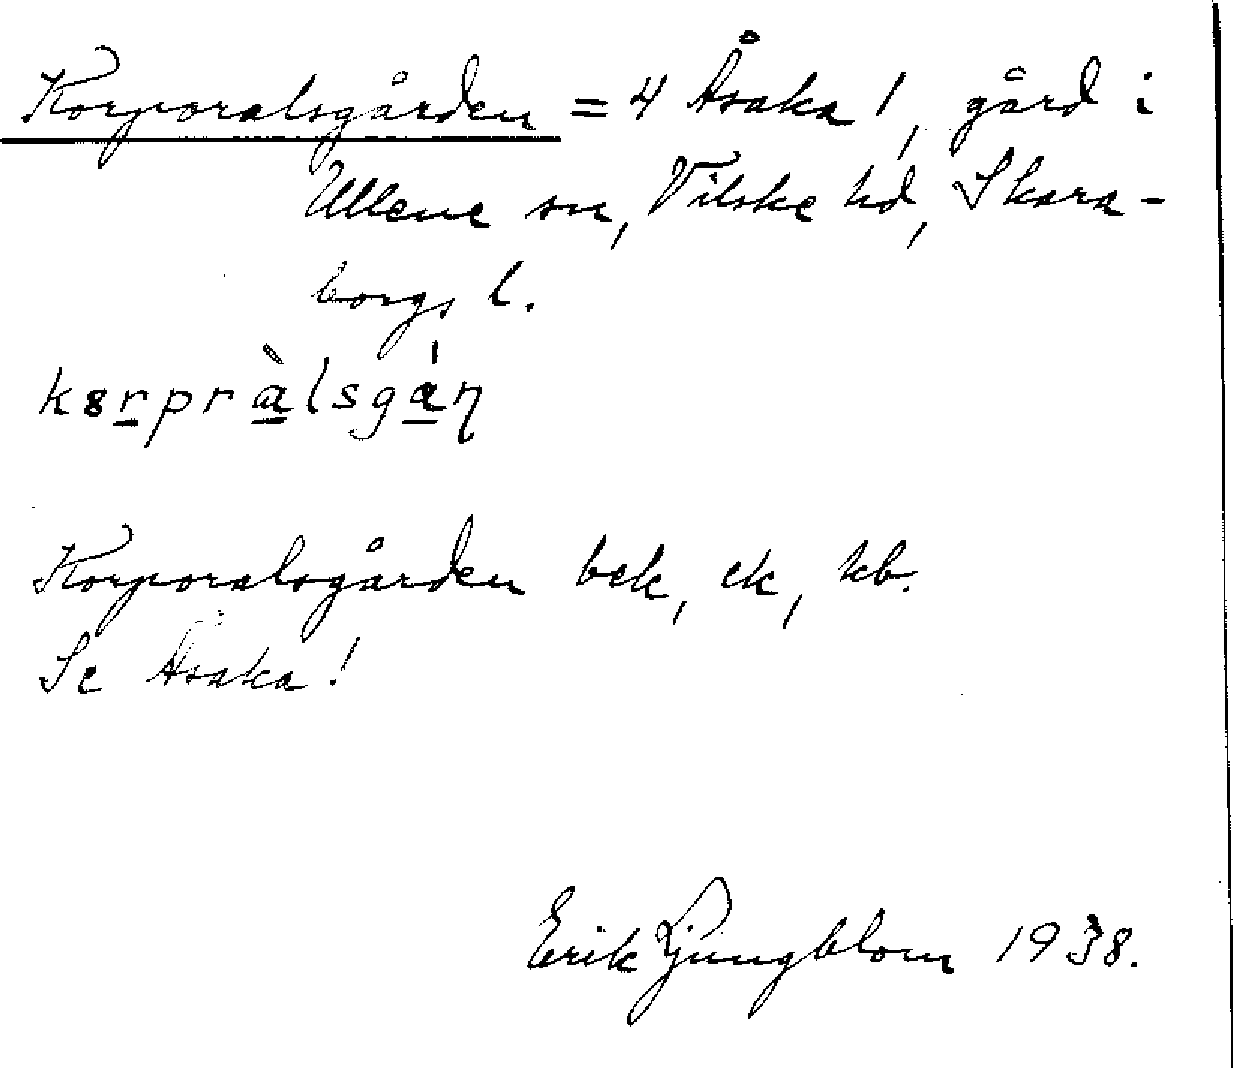 Korporalsgården = 4 Åsaka 1, gård i
Ullene sn, Vilske hd, Skara-
borgs l.
k8rpràlsgáɳ
Korporalsgården bek, ek, kb.
Se Åsaka!
Erik Ljungblom 1938.